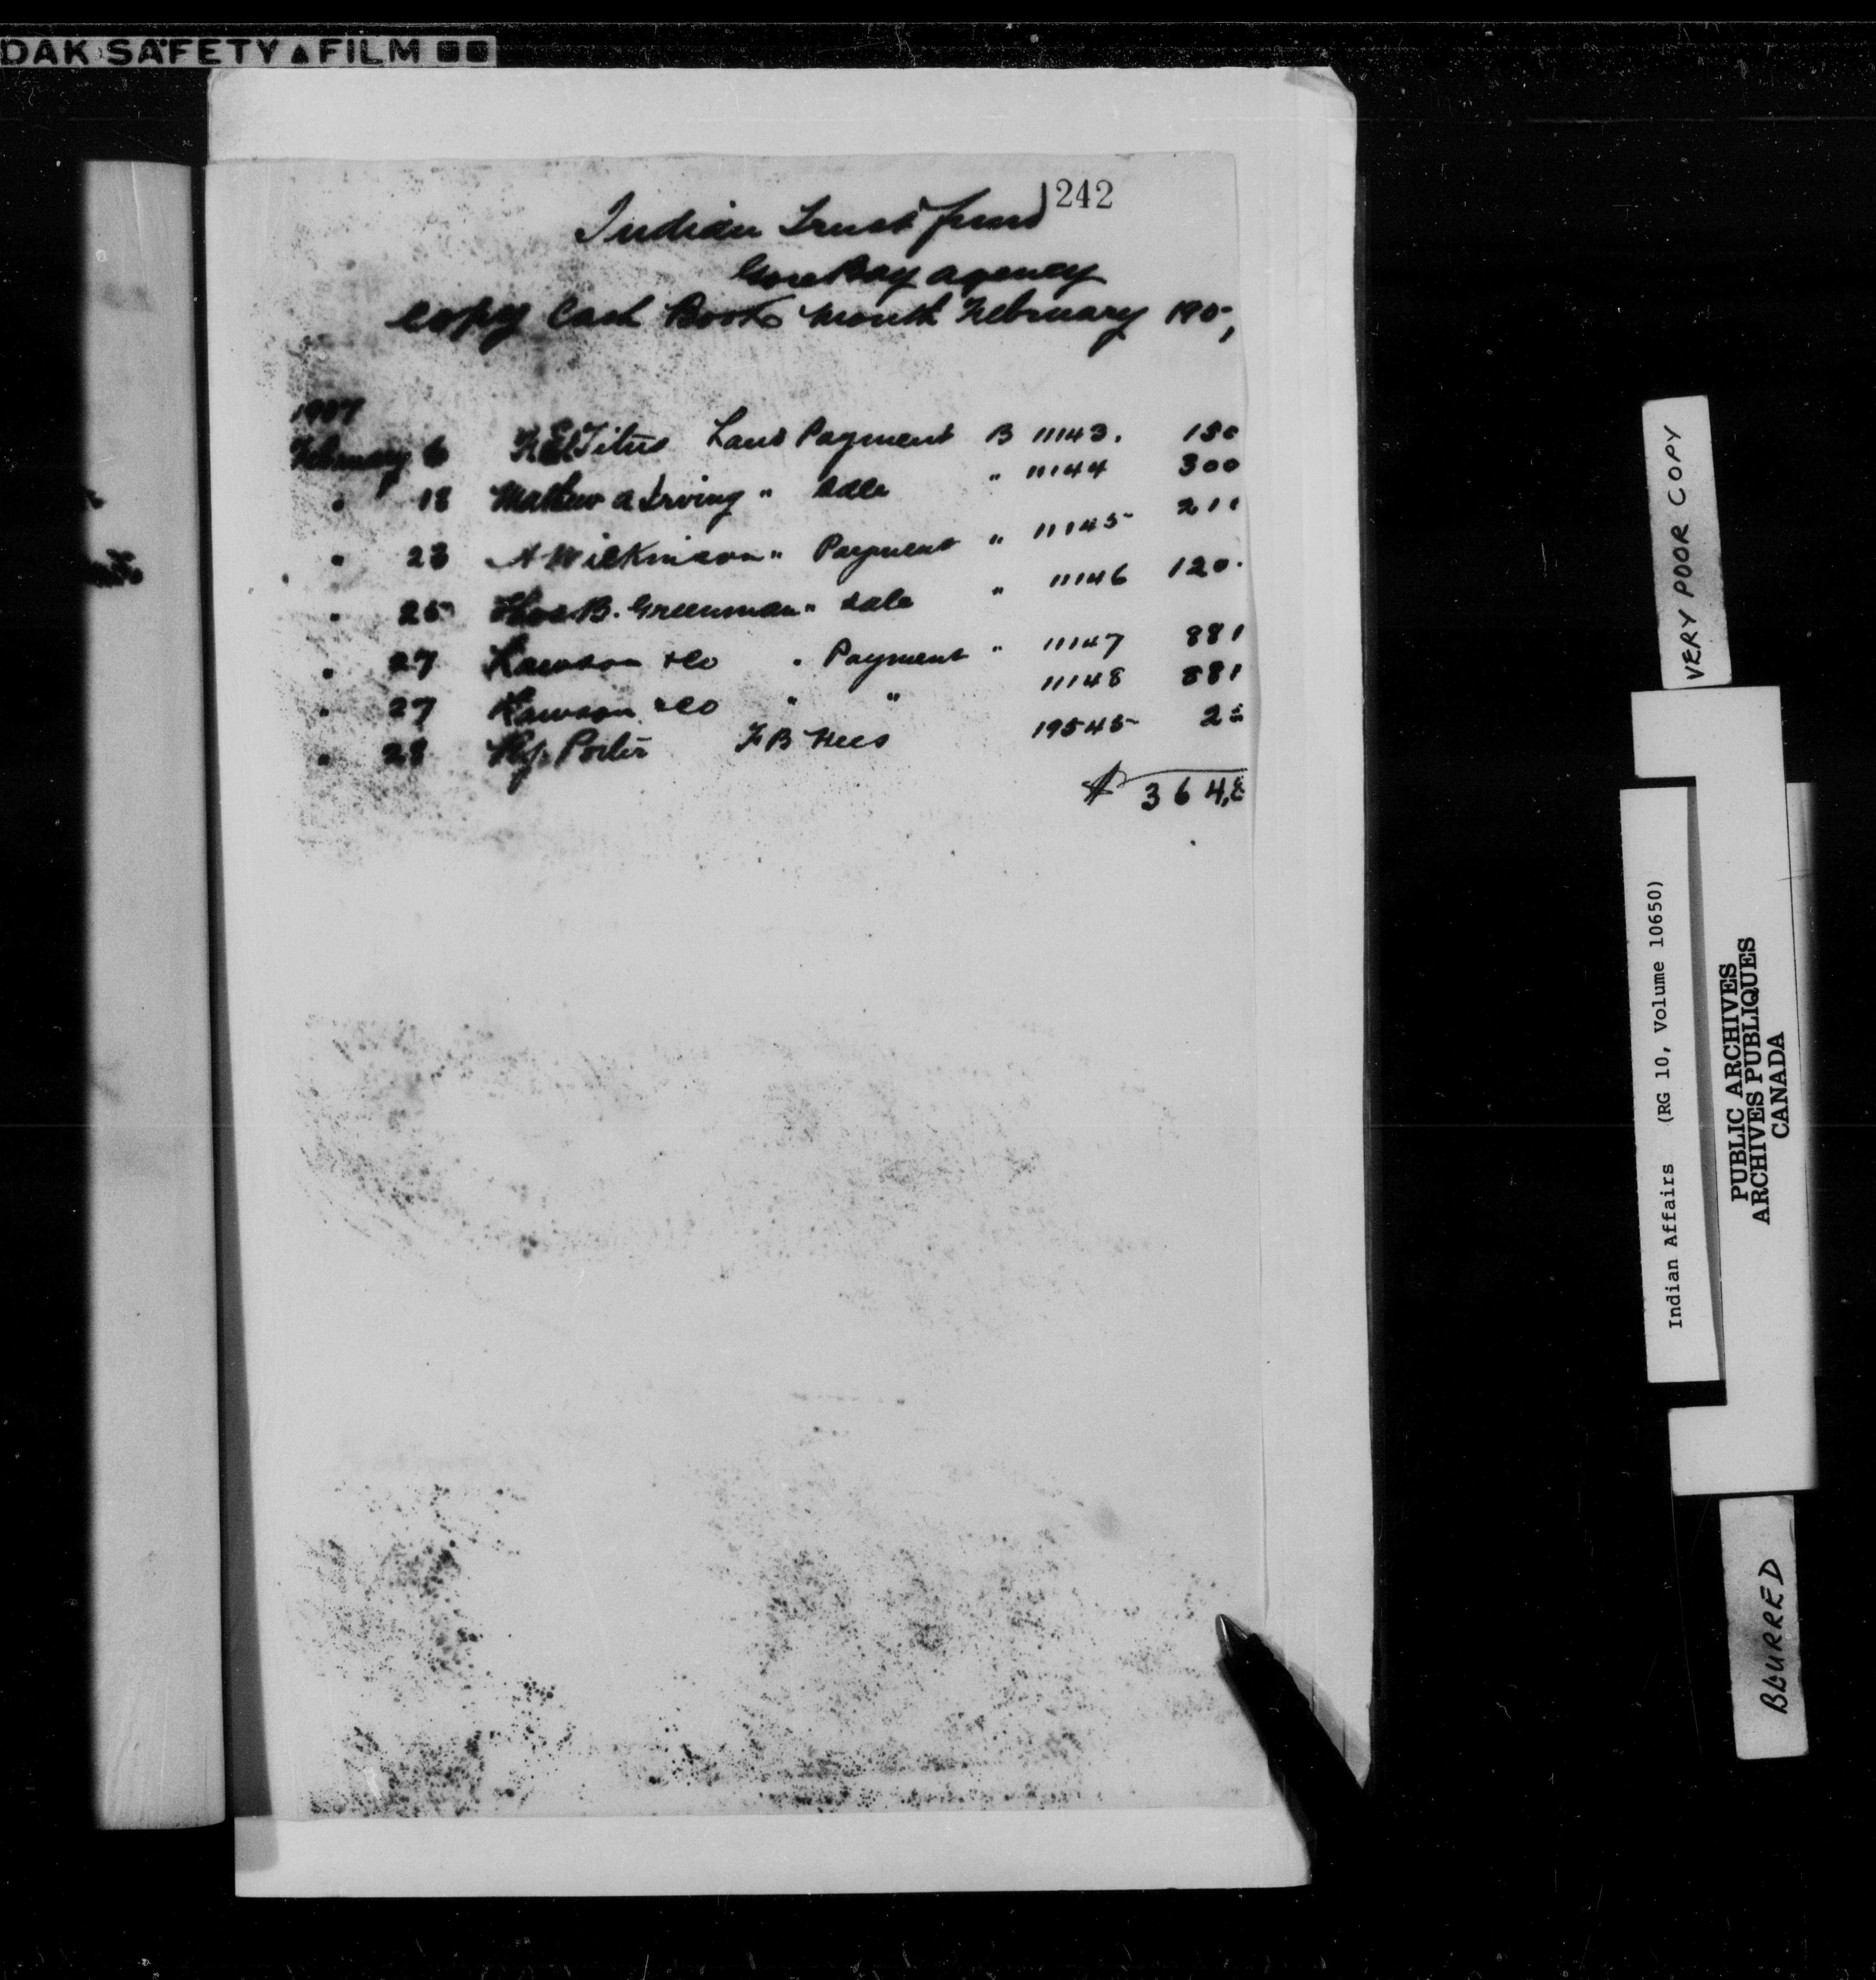 DAK SAFETY ▲ FILM
242
Indian Trust fund
Gore Bay agency
Copy Cash Book month February 190
1907
February 6 Titus Land Payment B 11143. 150
" 18 Mathew A Irving " Sale " 11144 300
" 23 A Wilkinson " Payment " 11145 211
" 25 Thos B. Greenman " Sale " 11146 120.
" 27 Lawson & Co " Payment " 11147 881
" 27 Lawson & Co " " 11148 881
" 28 Hy. Porter F B Fees 19545 2
$ 364
VERY POOR COPY
Indian Affairs (RG 10, Volume 10650)
PUBLIC ARCHIVES
ARCHIVES PUBLIQUES
CANADA
BLURRED